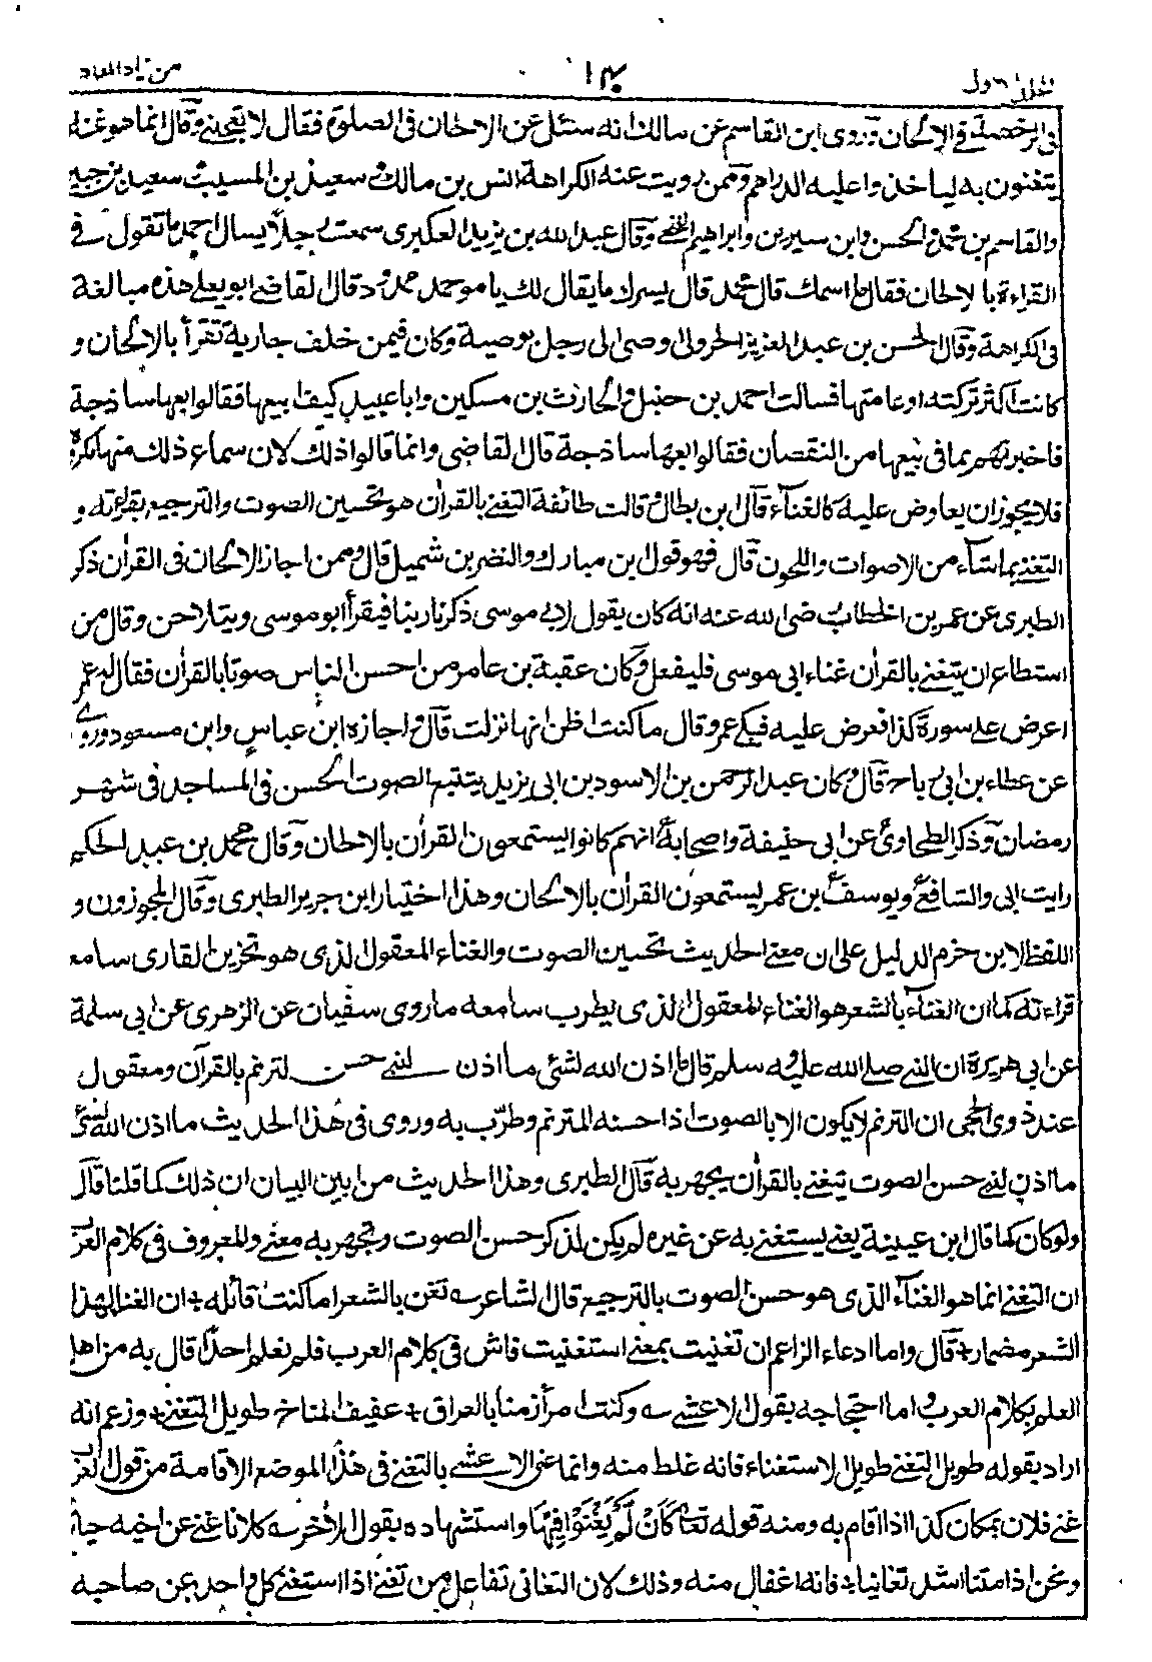 المجلد الاول ١٣٠ من زاد المعاد
فى الرخصة فى الالحان وروى ابن القاسم عن مالك انه سئل عن الالحان فى الصلوة فقال لا يعجبنى وقال انما هو غناء
يتغنون به لياخذوا عليه الدراهم وممن رويت عنه الكراهة انس بن مالك وسعيد بن المسيب وسعيد بن جبير
والقاسم بن محمد والحسن وابن سيرين وابراهيم النخعى وقال عبد الله بن يزيد العكبرى سمعت رجلا يسال احمد ما تقول فى
القراءة بالالحان فقال ما اسمك قال محمد قال يسرك ما يقال لك يا موحمد ممدود قال القاضى ابو يعلى هذه مبالغة
فى الكراهة وقال الحسن بن عبد العزيز الجروى اوصى الى رجل بوصية وكان فيمن خلف جارية تقرأ بالالحان و
كانت اكثر تركته او عامتها فسالت احمد بن حنبل والحارث بن مسكين وابا عبيد كيف ابيعها فقالوا بعها ساذجة
فاخبرتهم بما فى بيعها من النقصان فقالوا بعها ساذجة قال القاضى وانما قالوا ذلك لان سماع ذلك منها مكروه
فلا يجوز ان يعاوض عليه كالغناء قال ابن بطال وقالت طائفة التغنى بالقرآن هو تحسين الصوت والترجيع بقراءته و
التغنى بما شاء من الاصوات واللحون قال فهو قول ابن مبارك والنضر بن شميل قال وممن اجاز الالحان فى القرآن ذكر
الطبرى عن عمر بن الخطاب رضى الله عنه انه كان يقول لابى موسى ذكرنا ربنا فيقرأ ابو موسى ويتلاحن وقال من
استطاع ان يتغنى بالقرآن غناء ابى موسى فليفعل وكان عقبة بن عامر من احسن الناس صوتا بالقرآن فقال له عمر
اعرض على سورة كذا فعرض عليه فبكى عمر وقال ما كنت اظن انها نزلت قال واجازه ابن عباس وابن مسعود وروى
عن عطاء بن ابى رباح قال وكان عبد الرحمن بن الاسود بن ابى يزيد يتتبع الصوت الحسن فى المساجد فى شهر
رمضان وذكر الطحاوى عن ابى حنيفة واصحابه انهم كانوا يستمعون القرآن بالالحان وقال محمد بن عبد الحكم
رايت ابى والشافعى ويوسف بن عمر يستمعون القرآن بالالحان وهذا اختيار ابن جرير الطبرى وقال المجوزون و
اللفظ لابن حزم الدليل على ان معنى الحديث تحسين الصوت والغناء المعقول الذى هو تحزين القارى سامع
قراءته كما ان الغناء بالشعر هو الغناء المعقول الذى يطرب سامعه ما روى سفيان عن الزهرى عن ابى سلمة
عن ابى هريرة ان النبى صلى الله عليه وسلم قال ما اذن الله لشئ ما اذن لنبى حسن الترنم بالقرآن ومعقول
عند ذوى الحجى ان الترنم لا يكون الا بالصوت اذا حسنه المترنم وطرّب به وروى فى هذا الحديث ما اذن الله لشئ
ما اذن لنبى حسن الصوت يتغنى بالقرآن يجهر به قال الطبرى وهذا الحديث من ابين البيان ان ذلك كما قلنا قال
ولو كان كما قال ابن عيينة يعنى يستغنى به عن غيره لم يكن لذكر حسن الصوت والجهر به معنى والمعروف فى كلام العرب
ان التغنى انما هو الغناء الذى هو حسن الصوت بالترجيع قال الشاعر سه تغن بالشعر اما كنت قائله + ان الغناء لهذا
الشعر مضمار + قال واما ادعاء الزاعم ان تغنيت بمعنى استغنيت فاش فى كلام العرب فلم نعلم احدا قال به من اهل
العلم بكلام العرب واما احتجاجه بقول الاعشى سه وكنت امرأ زمنا بالعراق + عفيف المناخ طويل التغنى + وزعم انه
اراد بقوله طويل التغنى طويل الاستغناء فانه غلط منه وانما عنى الاعشى بالتغنى فى هذا الموضع الاقامة من قول العرب
غنى فلان بمكان كذا اذا اقام به ومنه قوله تعالى كَاَنْ لَّمْ يَغْنَوْا فِيْهَا واستشهاده بقول الآخر سه كلانا غنى عن اخيه حياته
ونحن اذا متنا اشد تغانيا + فانه اغفال منه وذلك لان التغانى تفاعل من تغنى اذا استغنى كل واحد عن صاحبه